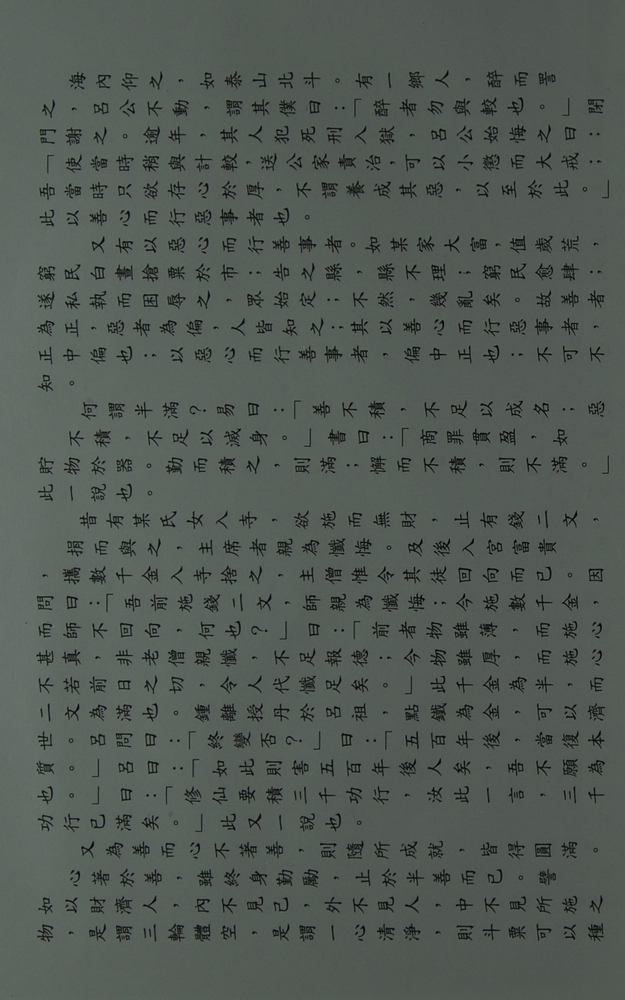 海內仰之，如泰山北斗。有一鄉人，醉而詈
之，呂公不動，謂其僕曰：「醉者勿與較也。」閉
門謝之。逾年，其人犯死刑入獄，呂公始悔之曰：
「使當時稍與計較，送公家責治，可以小懲而大戒；
吾當時只欲存心於厚，不謂養成其惡，以至於此。」
此以善心而行惡事者也。
又有以惡心而行善事者。如某家大富，值歲荒，
窮民白晝搶粟於市；告之縣，縣不理；窮民愈肆；
遂私執而困辱之，眾始定；不然，幾亂矣。故善者
為正，惡者為偏，人皆知之；其以善心而行惡事者，
正中偏也；以惡心而行善事者，偏中正也；不可不
知。
何謂半滿？易曰：「善不積，不足以成名；惡
不積，不足以滅身。」書曰：「商罪貫盈，如
貯物於器。勤而積之，則滿；懈而不積，則不滿。」
此一說也。
昔有某氏女入寺，欲施而無財，止有錢二文，
捐而與之，主席者親為懺悔。及後入宮富貴
，攜數千金入寺捨之，主僧惟令其徒回向而已。因
問曰：「吾前施錢二文，師親為懺悔；今施數千金，
而師不回向，何也？」曰：「前者物雖薄，而施心
甚真，非老僧親懺，不足報德；今物雖厚，而施心
不若前日之切，令人代懺足矣。」此千金為半，而
二文為滿也。鍾離授丹於呂祖，點鐵為金，可以濟
世。呂問曰：「終變否？」曰：「五百年後，當復本
質。」呂曰：「如此則害五百年後人矣，吾不願為
也。」曰：「修仙要積三千功行，汝此一言，三千
功行已滿矣。」此又一說也。
又為善而心不著善，則隨所成就，皆得圓滿。
心著於善，雖終身勤勵，止於半善而已。譬
如以財濟人，內不見己，外不見人，中不見所施之
物，是謂三輪體空，是謂一心清淨，則斗粟可以種